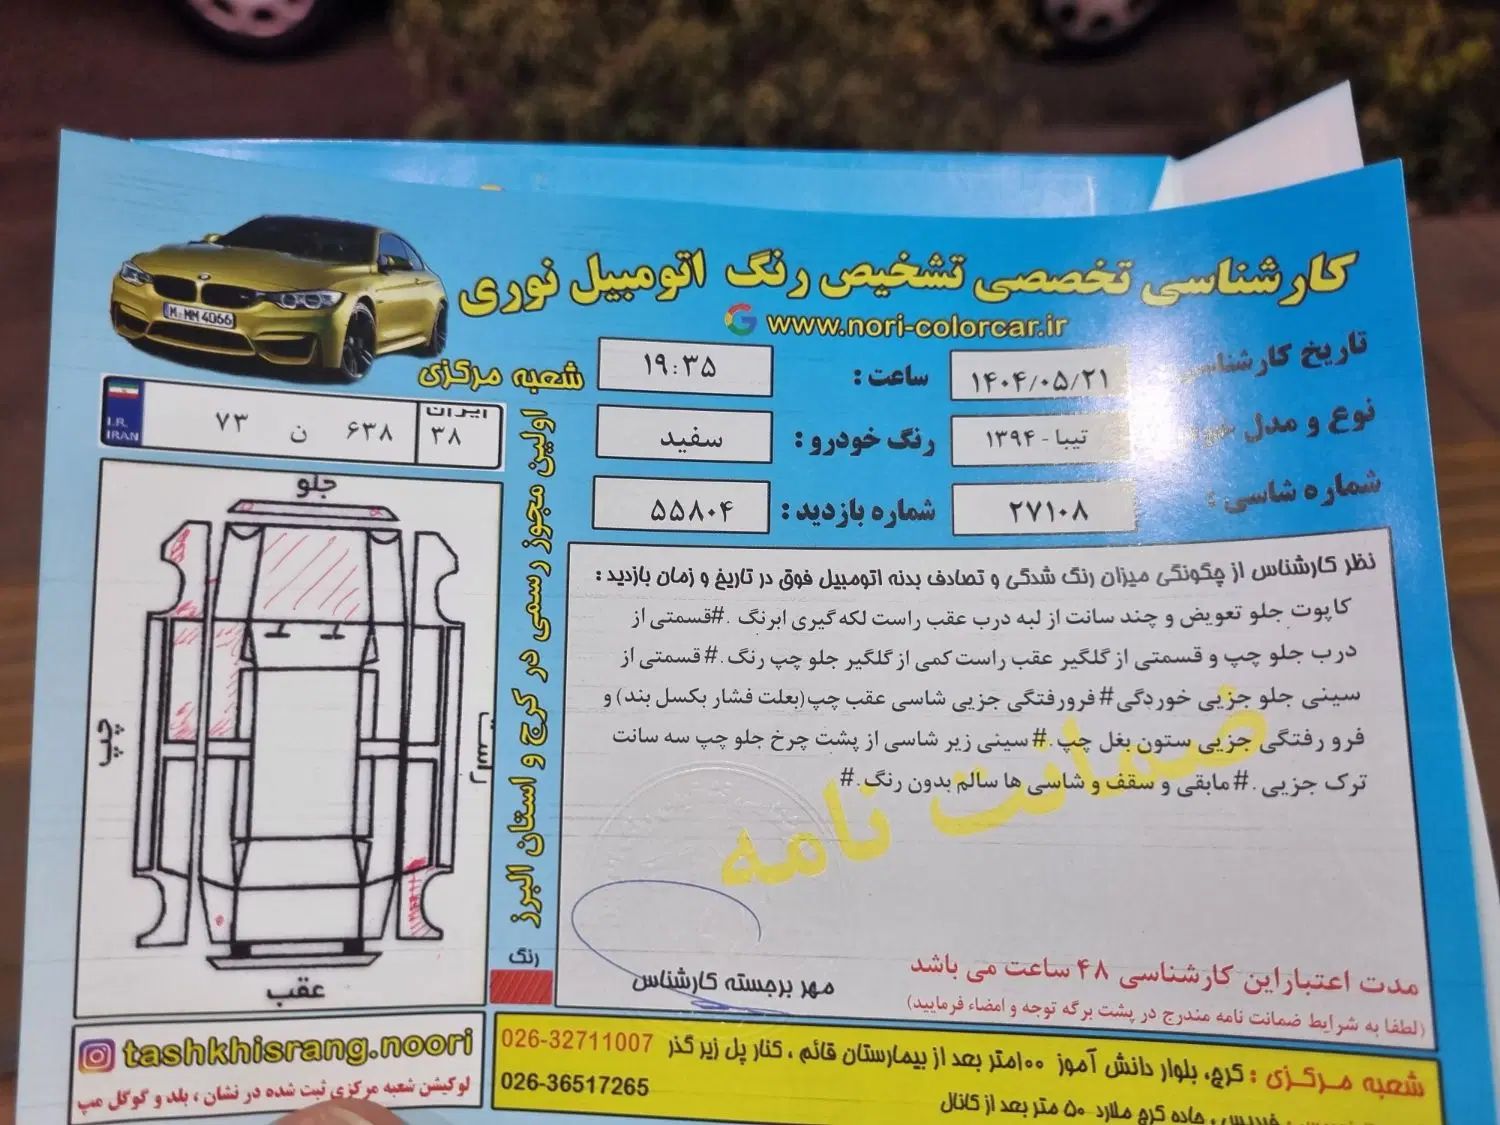 کارشناسی تخصصی تشخیص رنگ اتومبیل نوری
www.nori-colorcar.ir
شعبه مرکزی
M MM 4066
تاریخ کارشناسی
۱۴۰۴/۰۵/۲۱
ساعت :
۱۹:۳۵
نوع و مدل
تیبا - ۱۳۹۴
رنگ خودرو :
سفید
شماره شاسی :
۲۷۱۰۸
شماره بازدید :
۵۵۸۰۴
I.R. IRAN
۷۳ ن ۶۳۸
ایران
۳۸
جلو
چپ
راست
عقب
اولین مجوز رسمی در کرج و استان البرز
رنگ
نظر کارشناس از چگونگی میزان رنگ شدگی و تصادف بدنه اتومبیل فوق در تاریخ و زمان بازدید :
کاپوت جلو تعویض و چند سانت از لبه درب عقب راست لکه گیری ابرنگ .#قسمتی از
درب جلو چپ و قسمتی از گلگیر عقب راست کمی از گلگیر جلو چپ رنگ.#قسمتی از
سینی جلو جزیی خوردگی#فرورفتگی جزیی شاسی عقب چپ(بعلت فشار بکسل بند) و
فرو رفتگی جزیی ستون بغل چپ.#سینی زیر شاسی از پشت چرخ جلو چپ سه سانت
ترک جزیی.#مابقی و سقف و شاسی ها سالم بدون رنگ.#
ضمانت نامه
مدت اعتباراین کارشناسی ۴۸ ساعت می باشد
(لطفا به شرایط ضمانت نامه مندرج در پشت برگه توجه و امضاء فرمایید)
مهر برجسته کارشناس
tashkhisrang.noori
لوکیشن شعبه مرکزی ثبت شده در نشان ، بلد و گوگل مپ
شعبه مرکزی : کرج، بلوار دانش آموز ۱۰۰متر بعد از بیمارستان قائم ، کنار پل زیر گذر 026-32711007
026-36517265
جاده کرج ملارد ۵۰ متر بعد از کانال